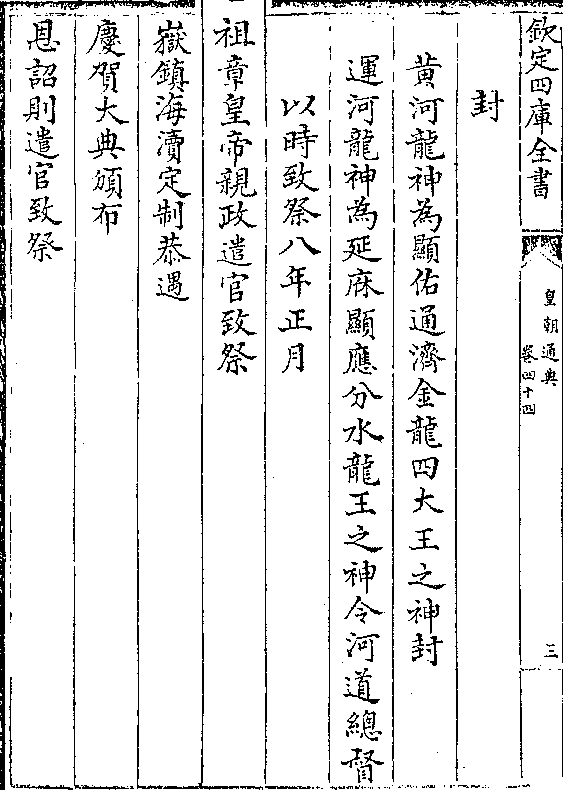 欽定四庫全書
皇朝通典
卷四十四
三
封
黄河龍神為顯佑通濟金龍四大王之神封
運河龍神為延庥顯應分水龍王之神令河道總督
以時致祭八年正月
祖章皇帝親政遣官致祭
嶽鎮海瀆定制恭遇
慶賀大典頒布
恩詔則遣官致祭